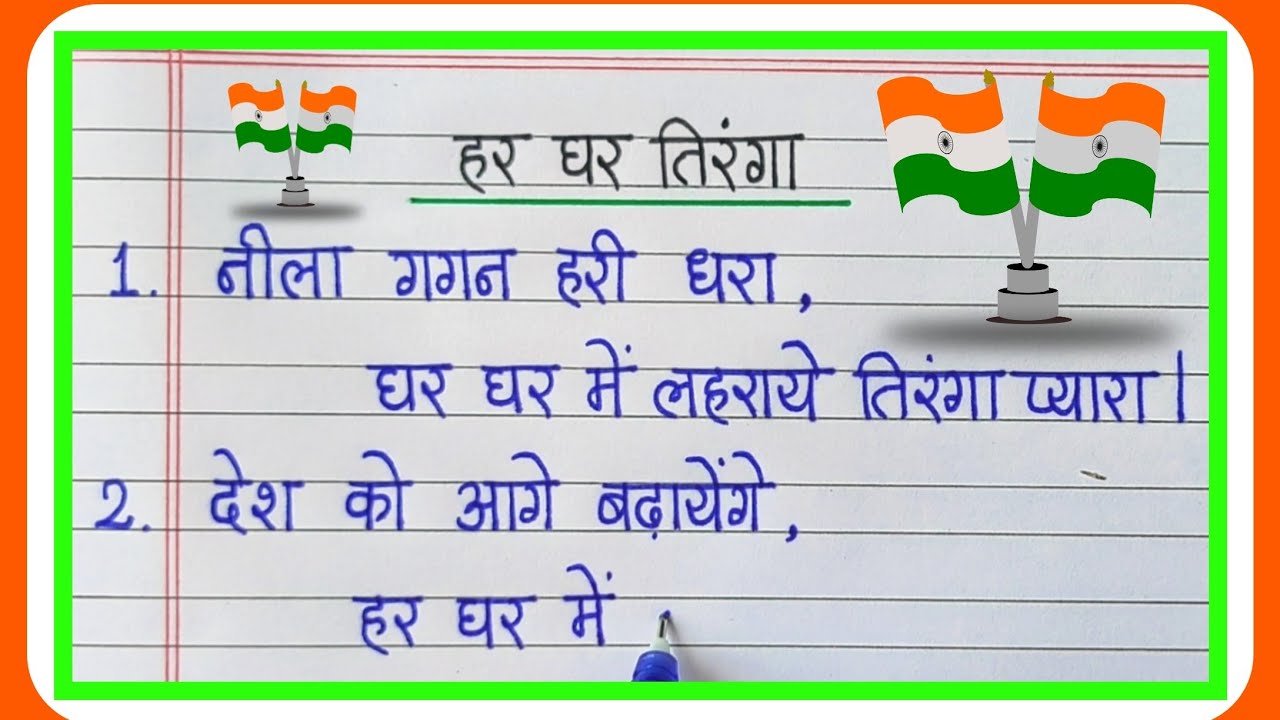 हर घर तिरंगा
1. नीला गगन हरी धरा,
घर घर में लहराये तिरंगा प्यारा।
2. देश को आगे बढ़ायेंगे,
हर घर में